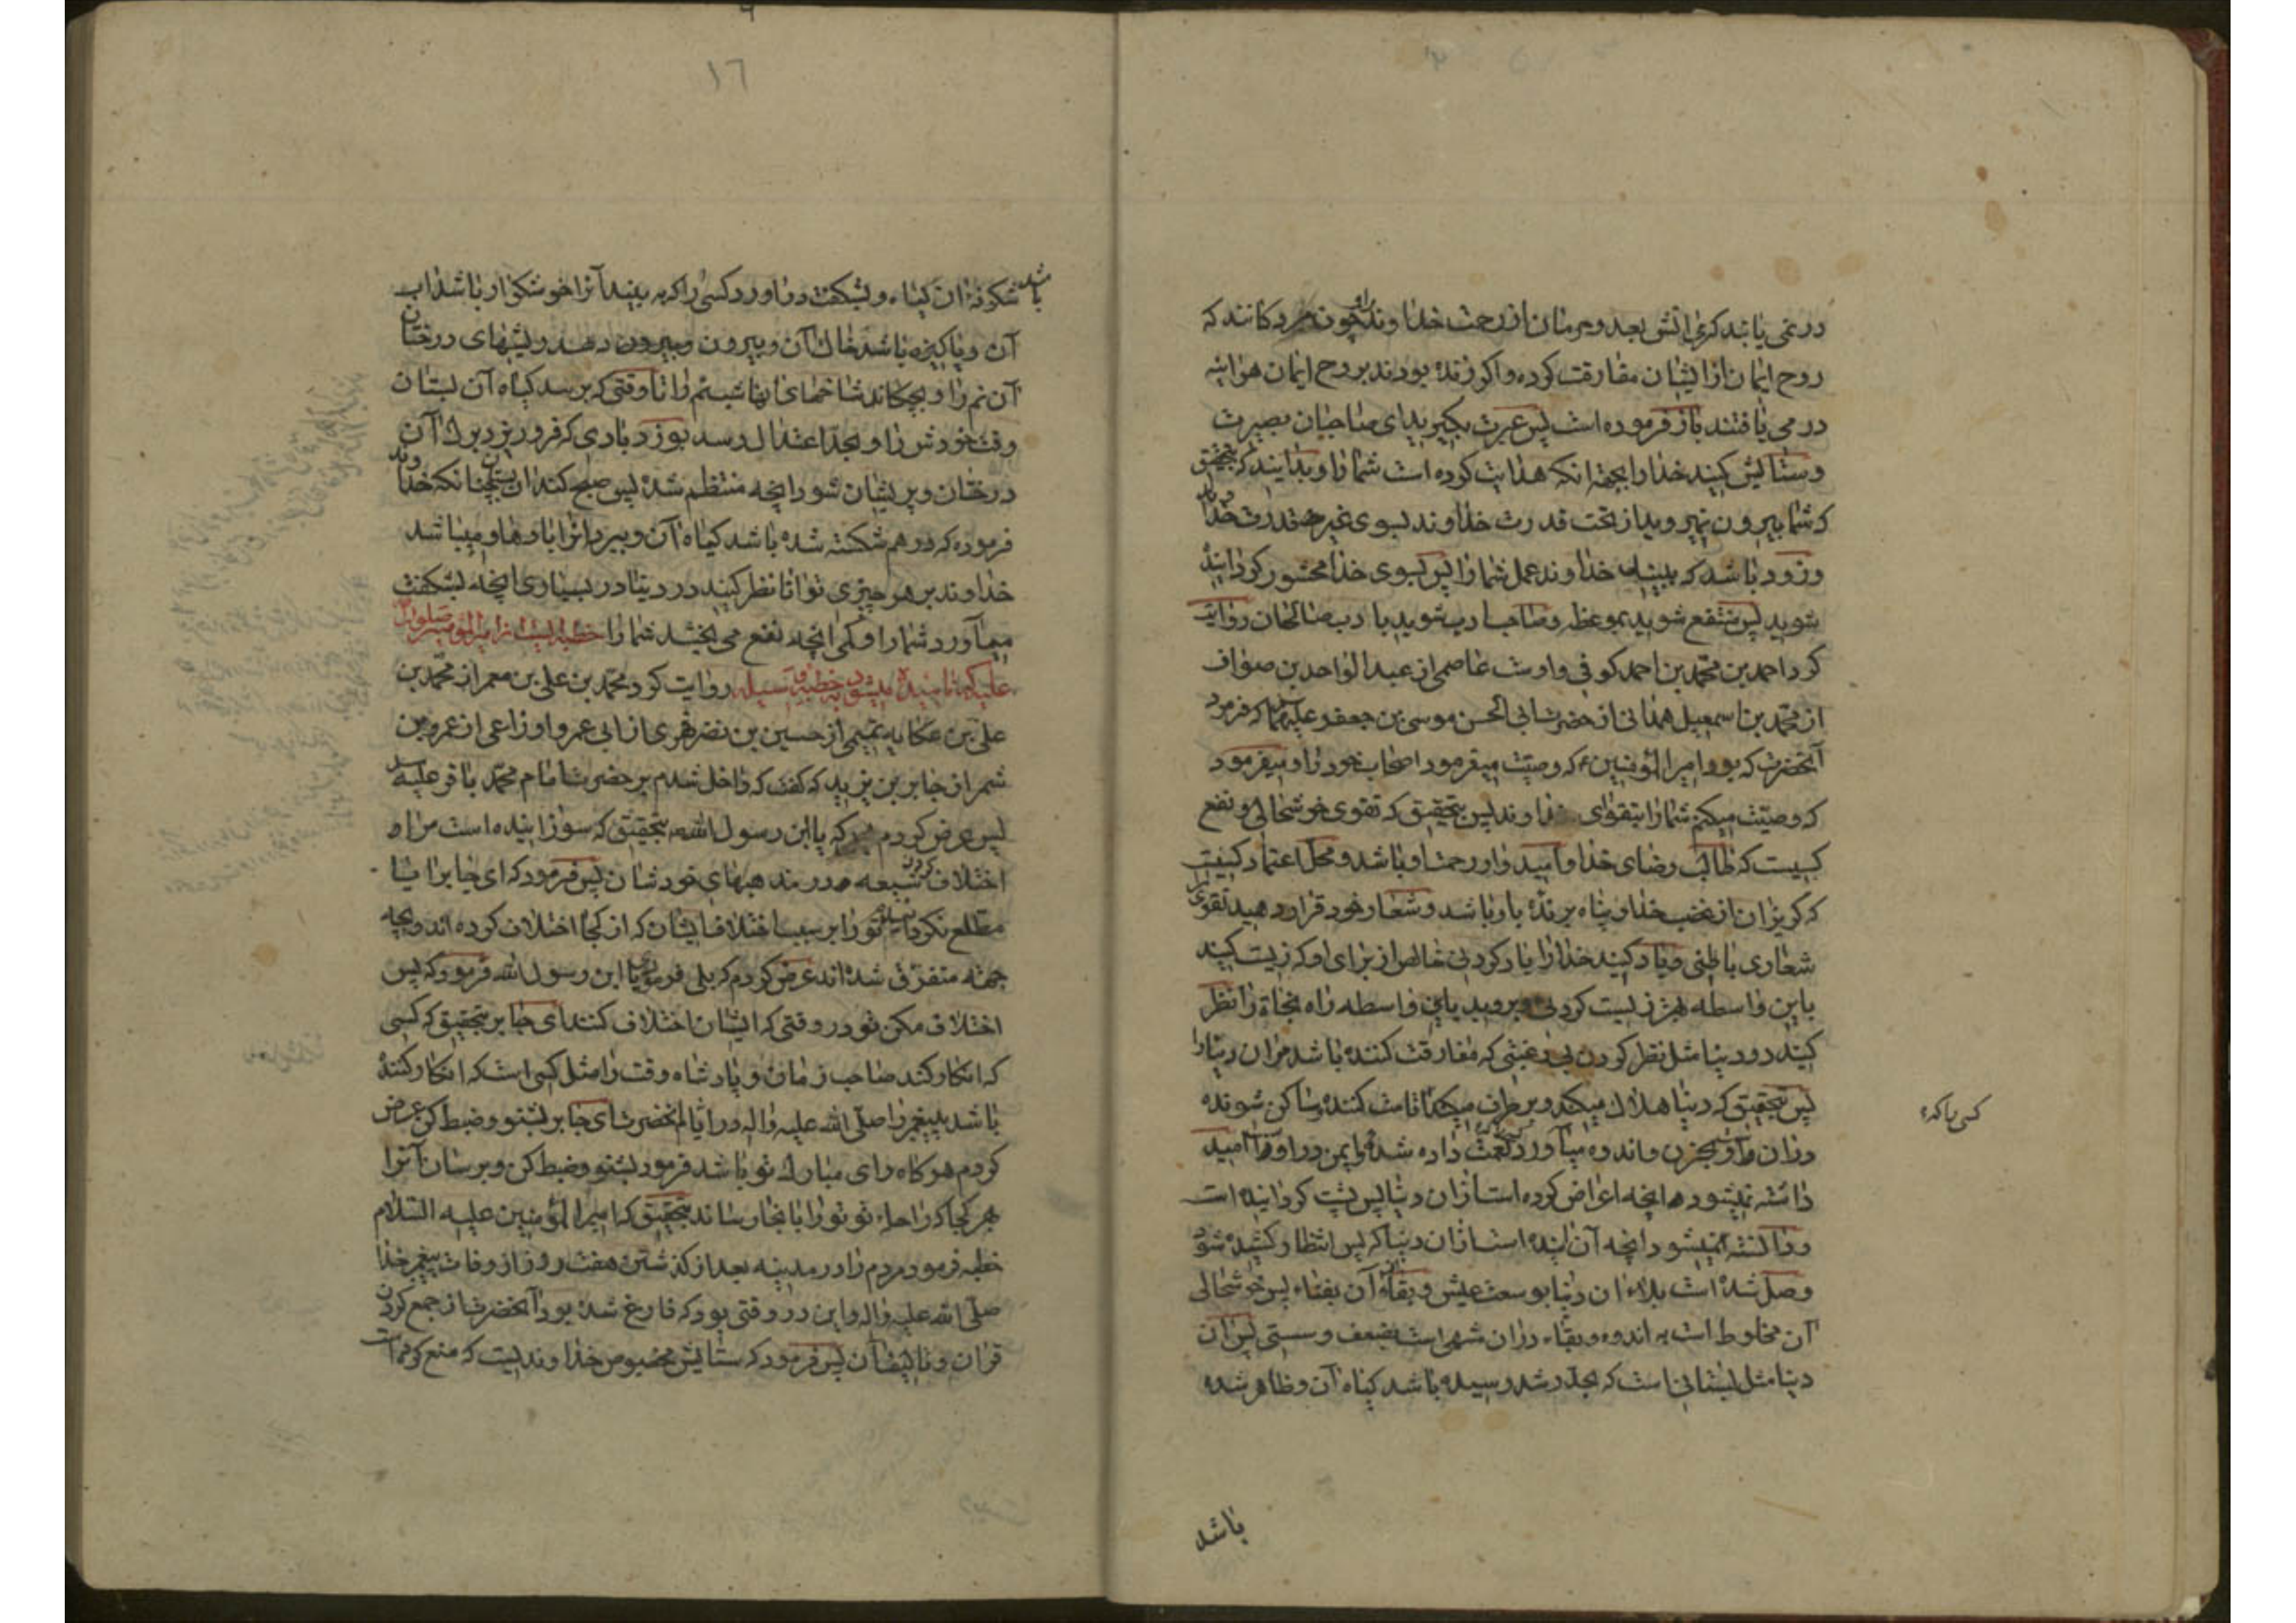 در نمی یابند گرمی اتش بعد و حرمان از رحمت خداوند را و چون مردکانند که
روح ایمان از ایشان مفارقت کرده و اکر زنده بودند بروح ایمان هر اینه
در می یافتند باز فرموده است پس عبرت بکیرید ای صاحبان بصیرت
و ستایش کنید خدا را بجهة انکه هدایت کرده است شما را و بدانید که بتحقیق
که شما بیرون نمیروید از تحت قدرت خداوند بسوی غیر قدرت خداوند
و زود باشد که ببیند خداوند عمل شما را پس بسوی خدا محشور کردانیده
شوید پس منتفع شوید بموعظه و صاحب ادب شوید باداب صالحان روایت
کرد احمد بن محمد بن احمد کوفی و اوست عاصمی از عبد الواحد بن صواف
از محمد بن اسمعیل همدانی از حضرت ابی الحسن موسی بن جعفر علیهما که فرمود
آنحضرت که بود امیر المؤمنین ع که وصیت میفرمود اصحاب خود را و میفرمود
که وصیت میکنم شما را بتقوای خداوند پس بتحقیق که تقوی خوشحالی و نفع
کسیست که طالب رضای خدا و امید وار رحمت او باشد و محل اعتماد کسیست
که کریزان از غضب خدا و پناه برنده باو باشد و شعار خود قرار دهید تقوی را
شعاری باطنی و یاد کنید خدا را یاد کردنی خالص از برای او که زیست کنید
باین واسطه بهتر زیست کردنی و بروید باین واسطه راه نجاة را نظر
کنید در دنیا مثل نظر کردن بی رغبتی که مفارقت کننده باشد مر ان دنیا را
پس بتحقیق که دنیا هلاک میکند و برطرف میکند اقامت کننده و ساکن شونده
کسی را که
در ان را و بحزن و اندوه میآورد نعمت داده شده و ایمن در او را امید
داشته نمیشود انچه اعراض کرده است از ان دنیا پس پشت کردانیده است
و دانسته نمیشود انچه آن آینده است از ان دنیا که پس انتظار کشیده شود
وصل شده است بلاء ان دنیا بوسعت عیش و بقاء آن بفناء پس خوشحالی
آن مخلوط است به اندوه و بقاء در ان منتهی است بضعف و سستی پس ان
دنیا مثل بستانی است که بحد رشد رسیده باشد کیاه آن و ظاهر شده
باشد
١٦
باشد شکوفه ان کیاه و بشکفت در اورد کسی را که به بیند آنرا خوشکوار باشد اب
آن و پاکیزه باشد خاک آن و بیرون دهد ریشهای درختان
آن نم را و بچکاند شاخهای انها شبنم را تا وقتی که برسد کیاه آن بستان
وقت خودش را و بحد اعتدال رسد بوزد بادی که فرو ریزد برک آن
درختان و پریشان شود انچه منتظم شده پس صبح کند ان بستان چنانکه خداوند
فرموده که در هم شکسته شده باشد کیاه آن و ببرد انرا بادها و میباشد
خداوند بر هر چیزی توانا نظر کنید در دنیا در بسیاری انچه بشکفت
میآورد شما را و کمی انچه نفع می بخشد شما را خطبه ایست از امیر المؤمنین صلوات
علیه که نامیده میشود به خطبه وسیله روایت کرد محمد بن علی بن معمر از محمد بن
علی بن عکایه تمیمی از حسین بن نضر فهری از ابی عمرو اوزاعی از عمرو بن
شمر از جابر بن یزید که کفت که داخل شدم بر حضرت امام محمد باقر علیه السلام
پس عرض کردم که یا ابن رسول الله بتحقیق که سوزانیده است مرا و
اختلاف کردن شیعه در مذهبهای خودشان پس فرمود که ای جابر ایا
مطلع نکردانیدم تو را بر سبب اختلاف ایشان که از کجا اختلاف کرده اند و بچه
جهته متفرق شده اند عرض کردم که بلی فرمودی یا ابن رسول الله فرمود که پس
اختلاف مکن تو در وقتی که ایشان اختلاف کنند ای جابر بتحقیق که کسی
که انکار کند صاحب زمان و پادشاه وقت را مثل کسی است که انکار کننده
باشد پیغمبر را صلی الله علیه و اله در ایام آنحضرت ای جابر بشنو و ضبط کن عرض
کردم هر کاه رای مبارک تو باشد فرمود بشنو و ضبط کن و برسان آنرا
هر کجا که راحله تو تو را بانجا رساند بتحقیق که امیر المؤمنین علیه السلام
خطبه فرمود مردم را در مدینه بعد از کذشتن هفت روز از وفات پیغمبر خدا
صلی الله علیه و اله و این در وقتی بود که فارغ شده بود آنحضرت از جمع کردن
قران و تالیف آن پس فرمود که ستایش مخصوص خداوندیست که منع کرده است